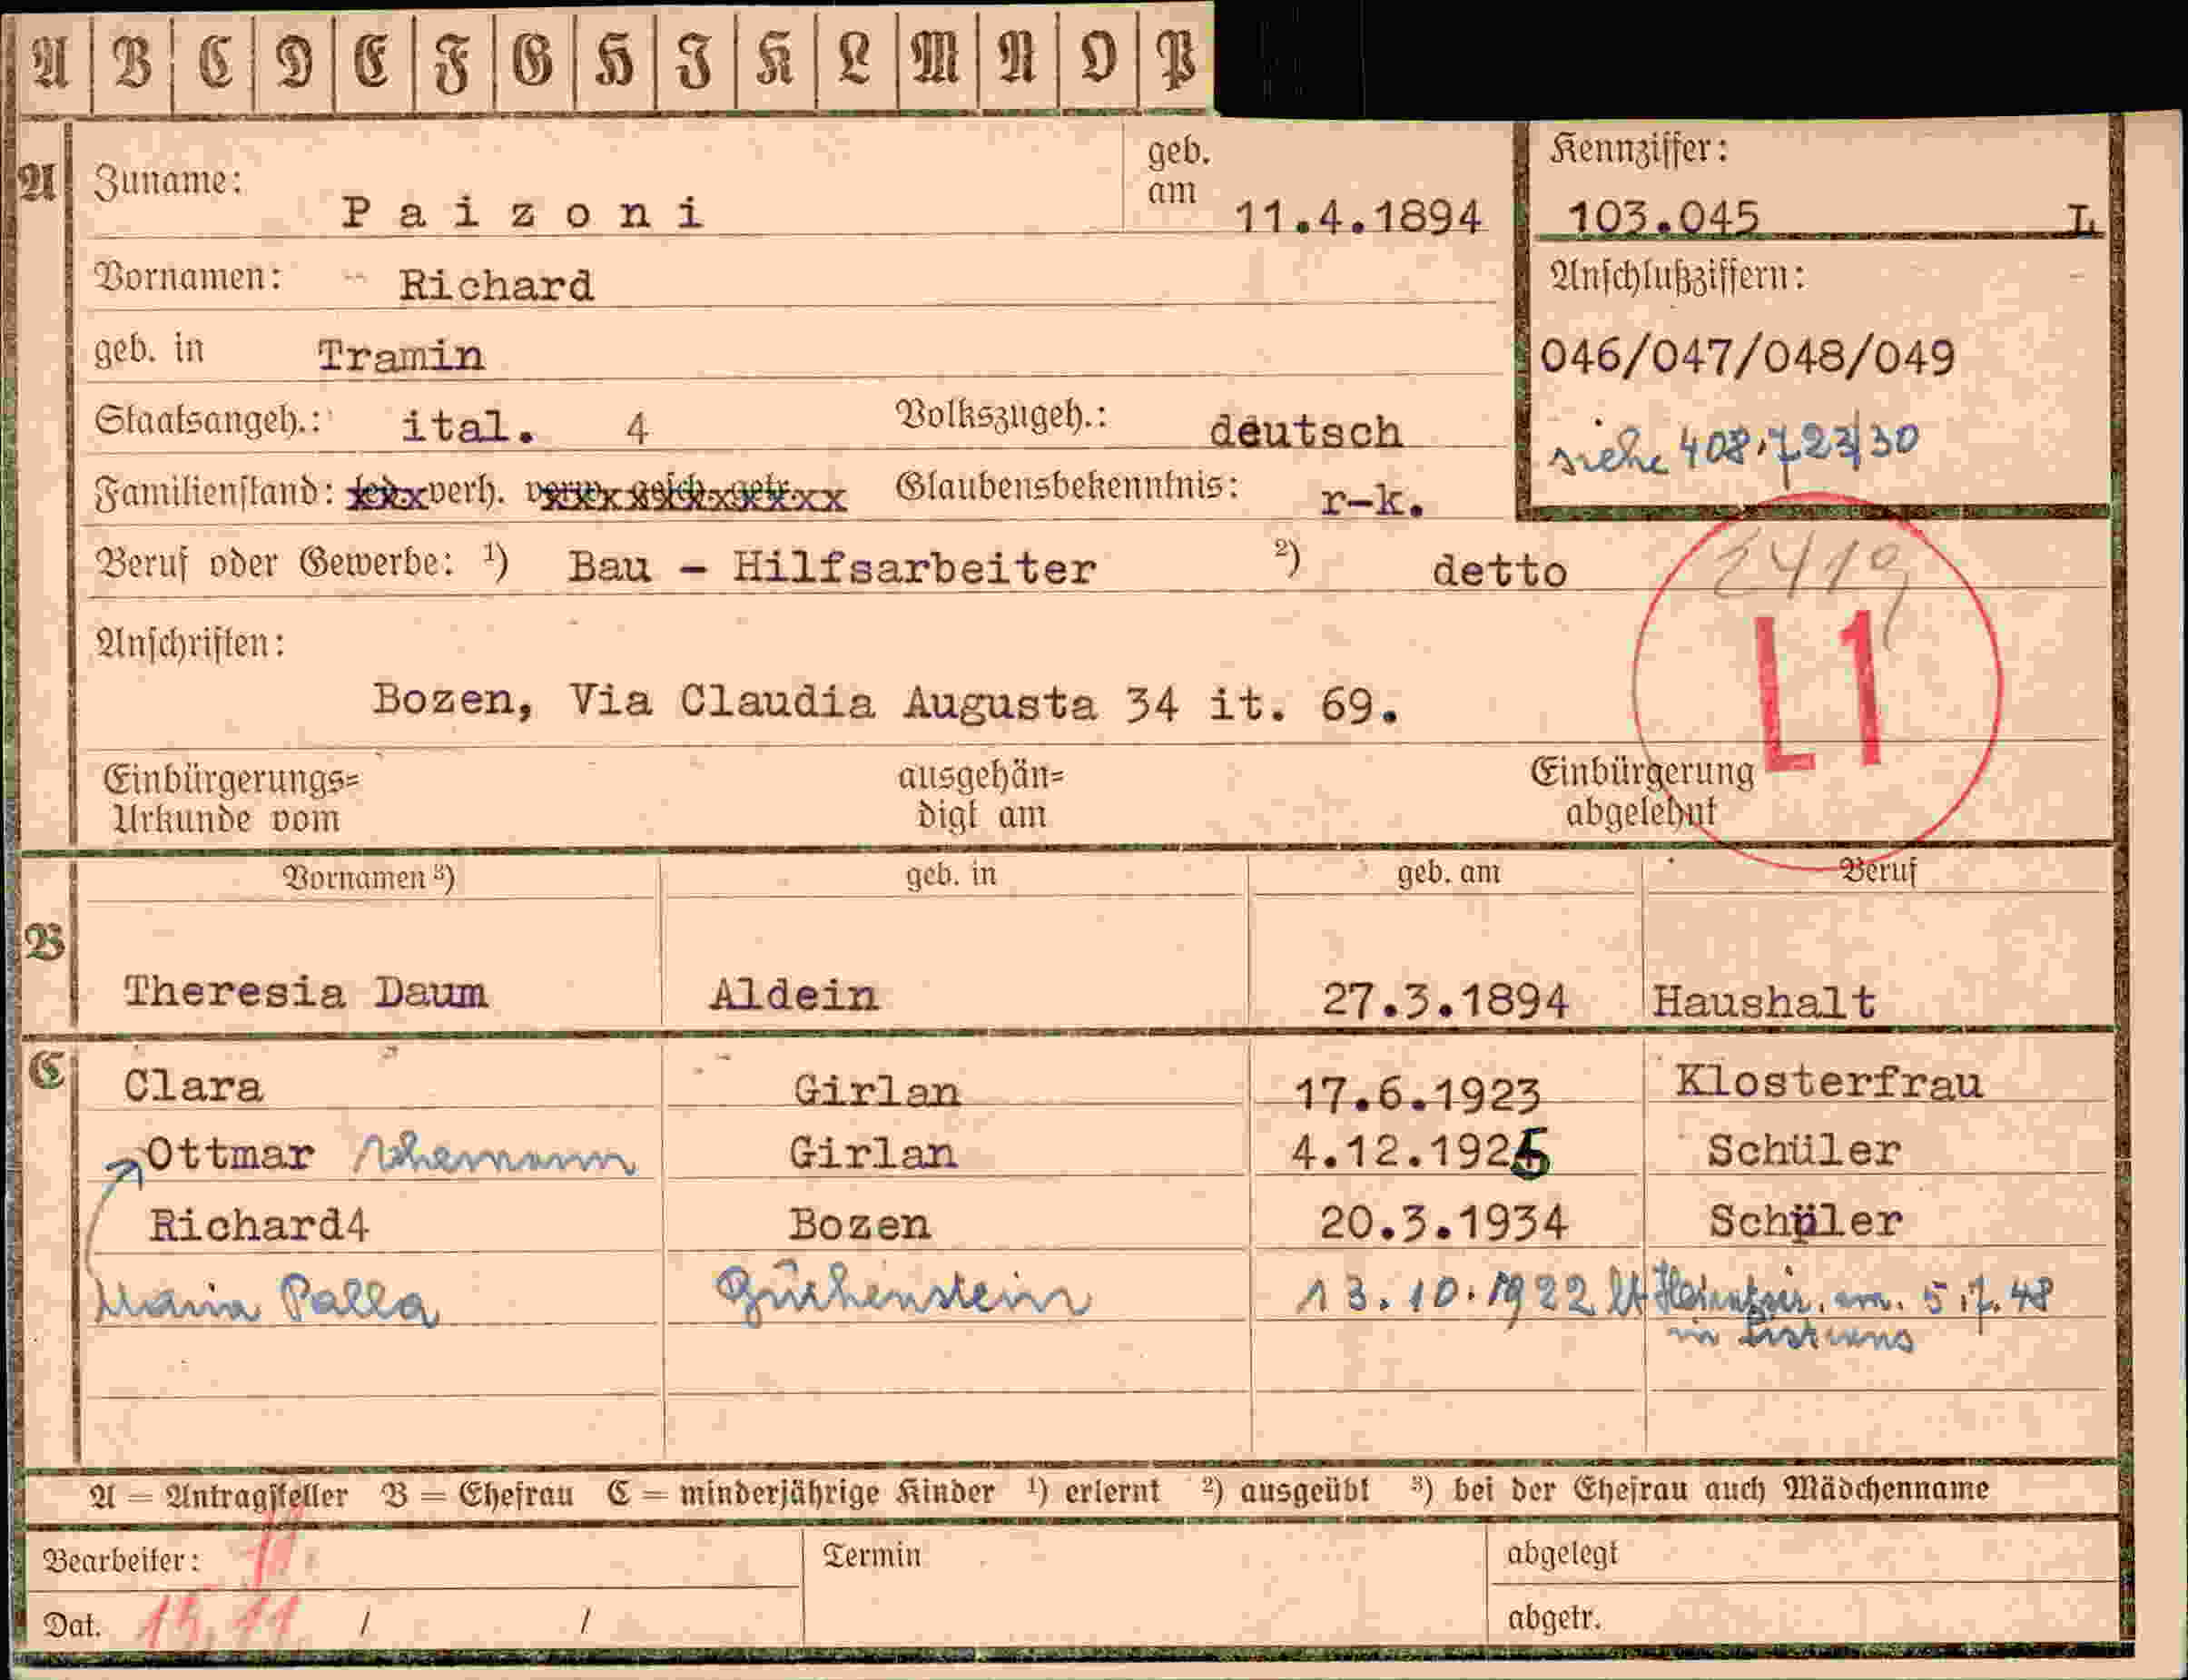 A B C D E F G H I K L M N O P
A
Zuname: Paizoni
geb. am 11.4.1894
Kennziffer:
103.045 L
Vornamen: Richard
Anschlußziffern:
046/047/048/049
siehe 408.723/30
geb. in Tramin
Staatsangeh.: ital. 4 Volkszugeh.: deutsch
Familienstand: verh. Glaubensbekenntnis: r-k.
Beruf oder Gewerbe: ¹) Bau - Hilfsarbeiter ²) detto
2419
L1
Anschriften:
Bozen, Via Claudia Augusta 34 it. 69.
Einbürgerungs=
Urkunde vom
ausgehän=
digt am
Einbürgerung
abgelehnt
Vornamen ³) geb. in geb. am Beruf
B
Theresia Daum Aldein 27.3.1894 Haushalt
C
Clara Girlan 17.6.1923 Klosterfrau
Ottmar Girlan 4.12.1925 Schüler
Richard4 Bozen 20.3.1934 Schüler
Maria Palla 13.10.1922 lt 5.7.48
in
A = Antragsteller B = Ehefrau C = minderjährige Kinder ¹) erlernt ²) ausgeübt ³) bei der Ehefrau auch Mädchenname
Bearbeiter:
Termin
abgelegt
Dat. 15. 11. / /
abgetr.